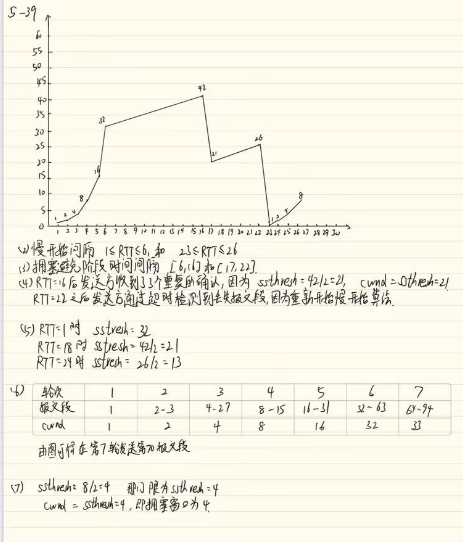 5-39
6
55
50
45
40
35
30
25
20
15
10
5
0
1 2 4 8 16 32 42 21 26 1 2 4 8
1 2 3 4 5 6 7 8 9 10 11 12 13 14 15 16 17 18 19 20 21 22 23 24 25 26 27 28 29 30
(2) 慢开始间隔 1≤RTT≤6, 和 23≤RTT≤26
(3) 拥塞避免阶段时间间隔 [6,16] 和 [17,22]
(4) RTT=16后发送方收到3个重复的确认, 因为 ssthresh=42/2=21, cwnd= ssthresh=21
RTT=22之后发送方通过超时检测到丢失报文段, 因为重新开始慢开始算法.
(5) RTT=1时 ssthresh=32
RTT=18时 ssthresh=42/2=21
RTT=24时 ssthresh=26/2=13
(6) 轮次 1 2 3 4 5 6 7
报文段 1 2-3 4-27 8-15 16-31 32-63 64-94
cwnd 1 2 4 8 16 32 33
由图可得 在第7轮发送第70报文段
(7) ssthresh=8/2=4 即门限为ssthresh=4
cwnd = ssthresh=4, 即拥塞窗口为4.